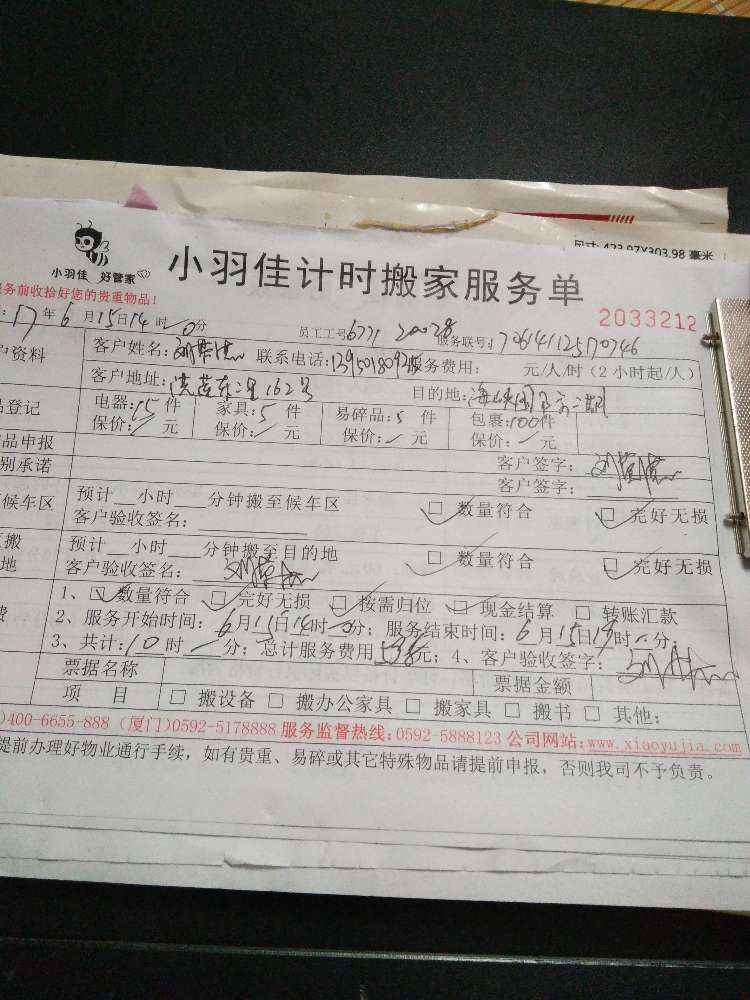 尺寸: 423.97X303.98 毫米
小羽佳 好管家
小羽佳计时搬家服务单
务前收拾好您的贵重物品!
2033212
17 年 6 月 15 日 14 时 分 员工工号 6771 20028 服务联号: 70614112570746
户资料
客户姓名: 联系电话: 服务费用: 元/人/时 (2 小时起/人)
客户地址: 莲东里162号 目的地:
品登记
电器: 15 件 家具: 5 件 易碎品: 5 件 包裹: 100 件
保价: / 元 保价: / 元 保价: / 元 保价: / 元
品申报
客户签字:
别承诺
客户签字:
候车区
预计 小时 分钟搬至候车区 □ 数量符合 □ 完好无损
客户验收签名:
搬
地
预计 小时 分钟搬至目的地 □ 数量符合 □ 完好无损
客户验收签名:
费
1、□ 数量符合 □ 完好无损 □ 按需归位 □ 现金结算 □ 转账汇款
2、服务开始时间: 6 月 15 日 14 时 分; 服务结束时间: 6 月 15 日 19 时 分;
3、共计: 10 时 分; 总计服务费用 538 元; 4、客户验收签字:
票据名称 票据金额
项 目 □ 搬设备 □ 搬办公家具 □ 搬家具 □ 搬书 □ 其他:
)400-6655-888 (厦门)0592-5178888 服务监督热线: 0592-5888123 公司网站: www.xiaoyujia.com
提前办理好物业通行手续, 如有贵重、易碎或其它特殊物品请提前申报, 否则我司不予负责。